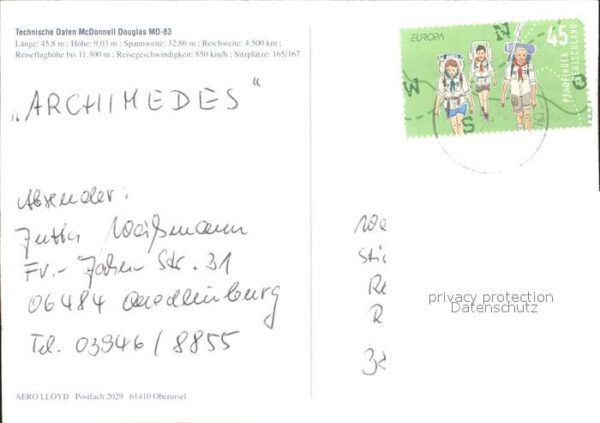 Technische Daten McDonnell Douglas MD-83
Länge: 45,8 m ; Höhe: 9,03 m ; Spannweite: 32,86 m ; Reichweite: 4.500 km ;
Reiseflughöhe bis 11.300 m ; Reisegeschwindigkeit: 850 km/h ; Sitzplätze: 165/167
„ARCHIMEDES“
Absender:
Jutta Weißmann
Fr.- Str. 31
06484 Quedlinburg
Tel. 03946/8855
AERO LLOYD Postfach 2029 61410 Oberursel
EUROPA
45
PFADFINDER
DEUTSCHLAND
N
W
O
S
Sti
Re
R
privacy protection
Datenschutz